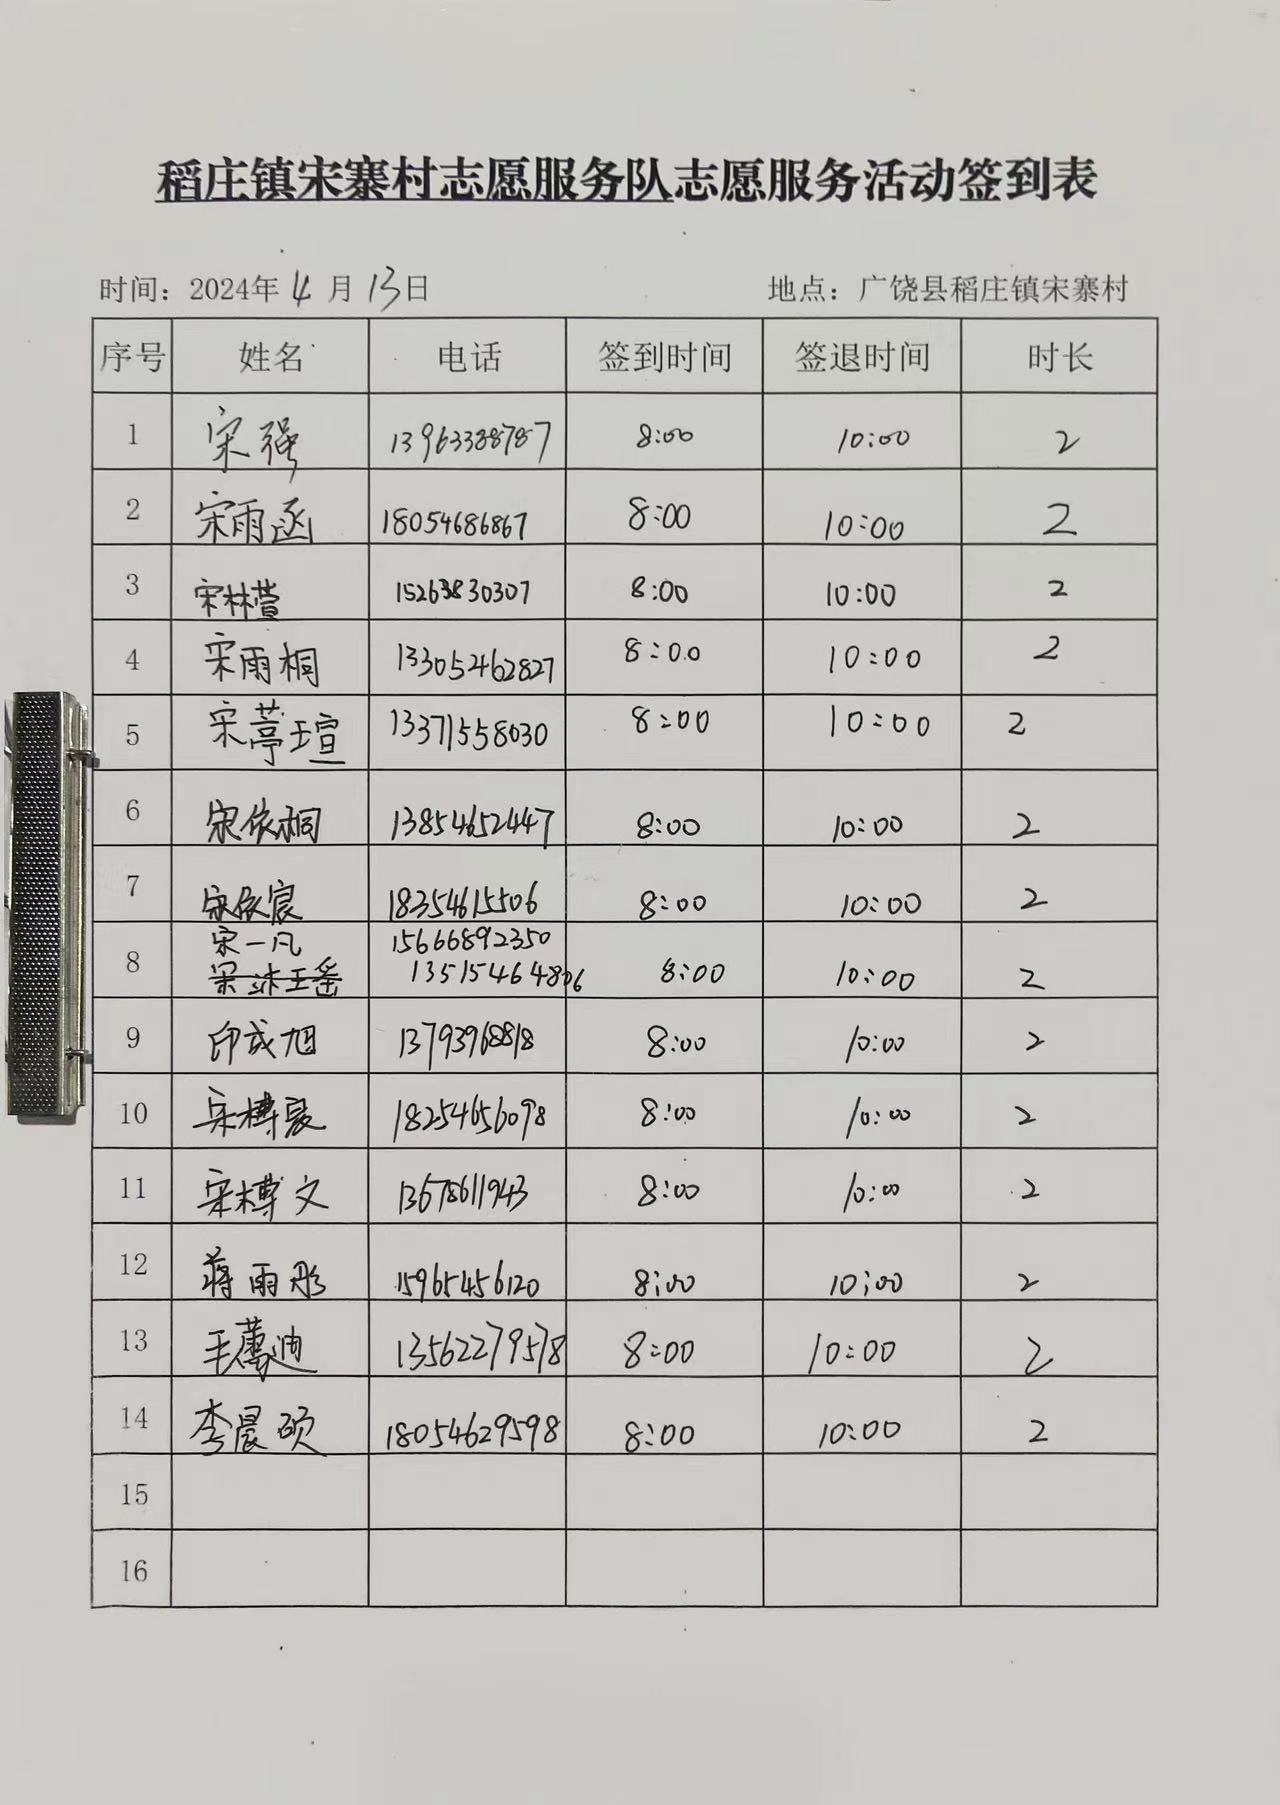 稻庄镇宋寨村志愿服务队志愿服务活动签到表
时间：2024年 4 月 13日 地点：广饶县稻庄镇宋寨村
序号 姓名 电话 签到时间 签退时间 时长
1 宋强 13963388787 8:00 10:00 2
2 宋雨函 18054686867 8:00 10:00 2
3 宋林萱 15263830307 8:00 10:00 2
4 宋雨桐 13305462827 8:00 10:00 2
5 宋葶瑄 13371558030 8:00 10:00 2
6 宋依桐 13854652447 8:00 10:00 2
7 宋依宸 18354615506 8:00 10:00 2
宋一凡 15666892350
8 13515464806 8:00 10:00 2
9 印成旭 13793968818 8:00 10:00 2
10 宋博晟 18254656098 8:00 10:00 2
11 宋博文 13678611943 8:00 10:00 2
12 蒋雨彤 15965456120 8:00 10:00 2
13 毛 迪 13562279578 8:00 10:00 2
14 李晨硕 18054629598 8:00 10:00 2
15
16